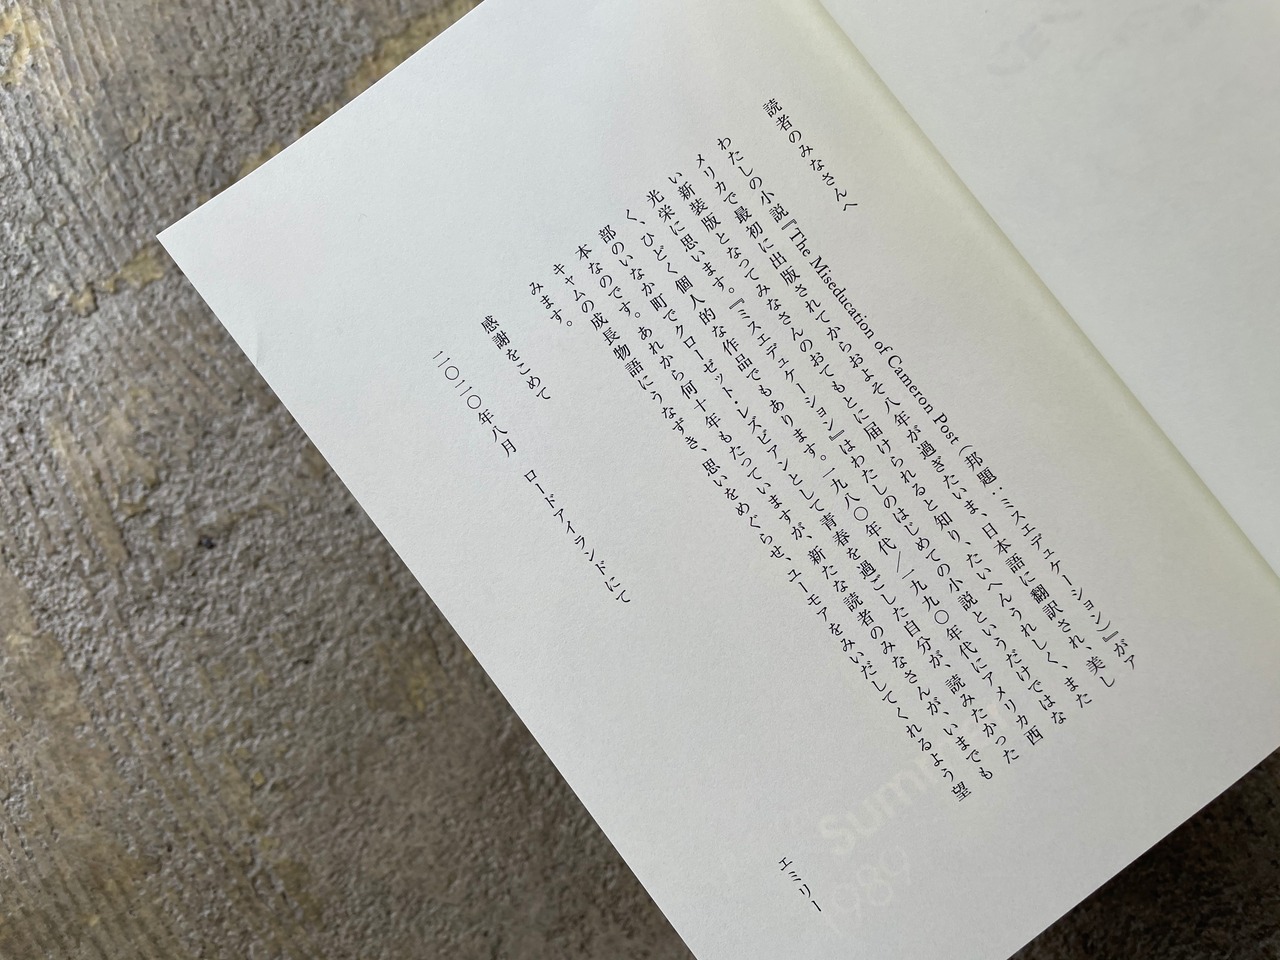 読者のみなさんへ
わたしの小説『The Miseducation of Cameron Post（邦題：ミスエデュケーション）』がア
メリカで最初に出版されてからおよそ八年が過ぎたいま、日本語に翻訳され、美し
い新装版となってみなさんのおてもとに届けられると知り、たいへんうれしく、また
光栄に思います。『ミスエデュケーション』はわたしのはじめての小説というだけではな
く、ひどく個人的な作品でもあります。一九八〇年代／一九九〇年代にアメリカ西
部のいなか町でクローゼット・レズビアンとして青春を過ごした自分が、読みたかった
本なのです。あれから何十年もたっていますが、新たな読者のみなさんが、いまでも
キャムの成長物語にうなずき、思いをめぐらせ、ユーモアをみいだしてくれるよう望
みます。
感謝をこめて
二〇二〇年八月　ロードアイランドにて
エミリー
1989